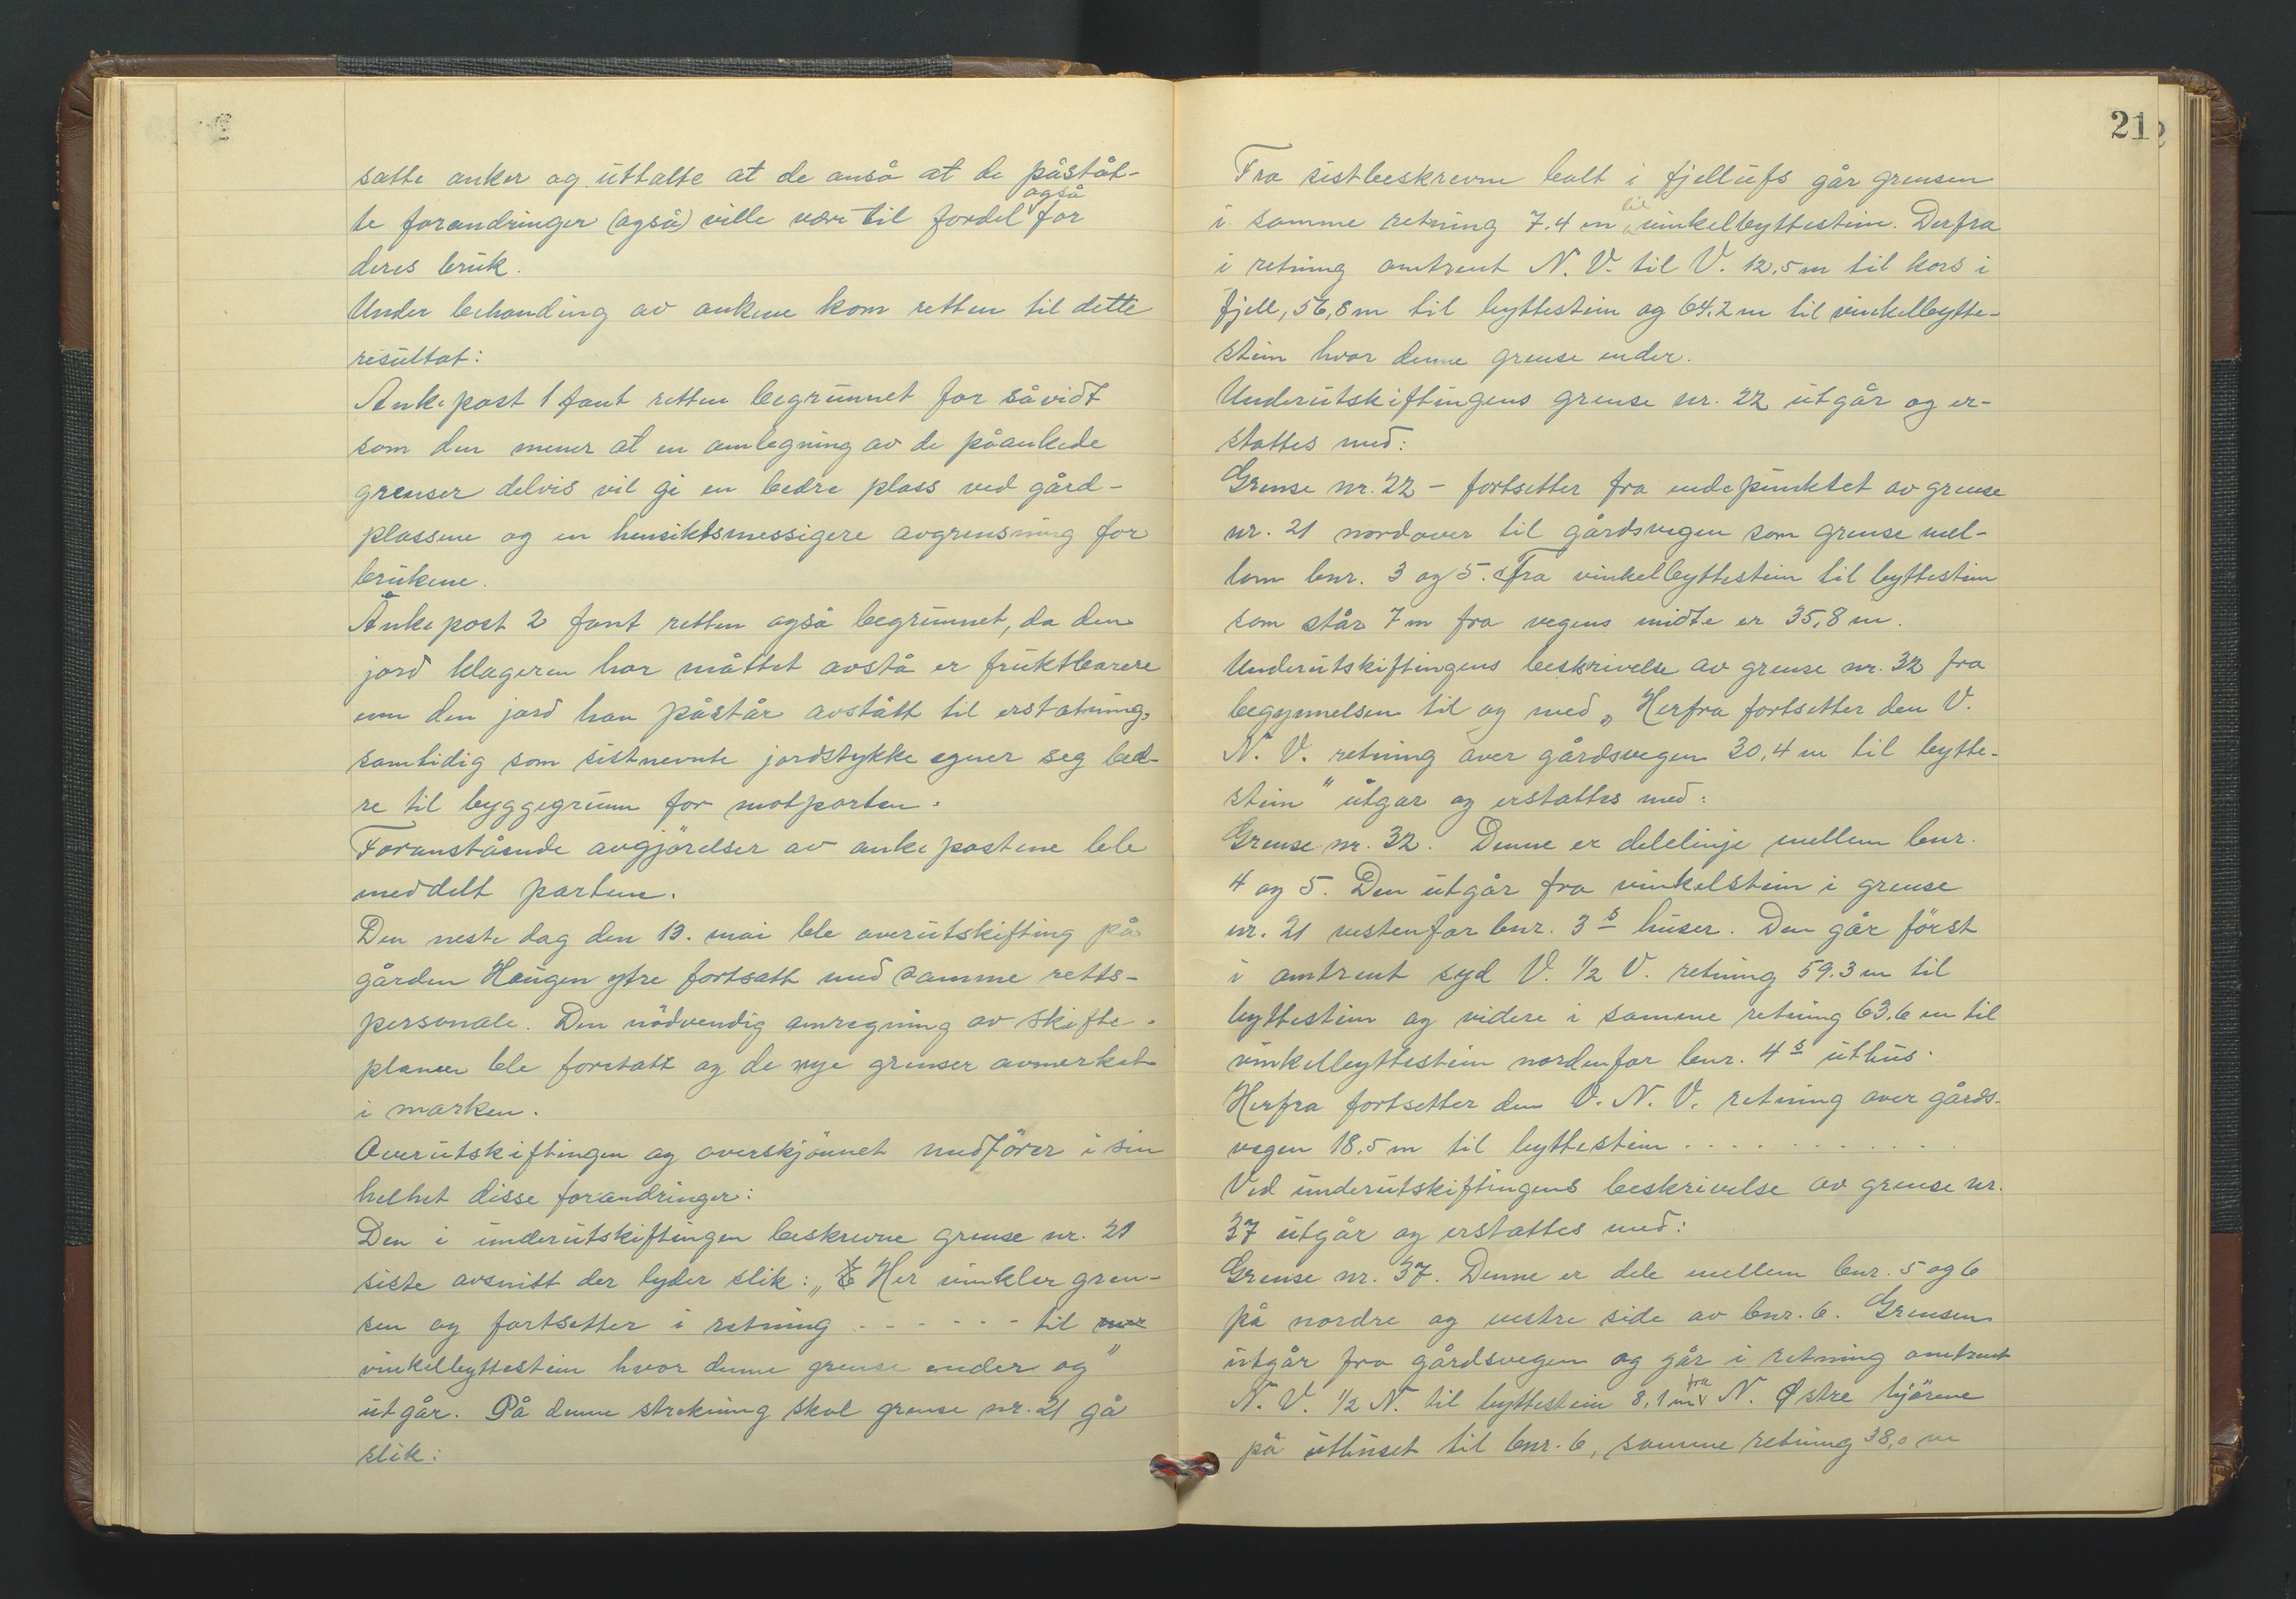 satte anker og uttalte at de anså at de påståt-
te forandringer (også) ville være til fordel også for
deres bruk.
Under behanding av ankene kom retten til dette
resultat:
Ankepost 1 fant retten begrunnet for såvidt
som den mener at en omlegning av de påankede
grenser delvis vil gi en bedre plass ved gård-
plassene og en hensiktsmessigere avgrensning for
brukene.
Ankepost 2 fant retten også begrunnet, da den
jord klageren har måttet avstå er fruktbarere
enn den jord han påstår avstått til erstatning,
samtidig som sistnevnte jordstykke egner seg bed-
re til byggegrunn for motparten.
Foranstående avgjörelser av ankepostene ble
meddelt partene.
Den neste dag den 13. mai ble overutskifting på
gården Haugen ytre fortsatt med samme retts-
personale. Den nödvendig omregning av skifte-
planen ble foretatt og de nye grenser avmerket
i marken.
Overutskiftingen og overskjönnet medförer i sin
helhet disse forandringer:
Den i underutskiftingen beskrevne grense nr. 21
siste avsnitt der lyder slik: „ Her vinkler gren-
sen og fortsetter i retning - - - - - - til
vinkelbyttestein hvor denne grense ender og"
utgår. På denne strekning skal grense nr. 21 gå
slik:
21
Fra sistbeskrevne bolt i fjellufs går grensen
i samme retning 7.4 m til vinkelbyttestein. Derfra
i retning omtrent N. V. til V. 12,5 m til kors i
fjell, 56,8 m til byttestein og 64.2 m til vinkelbytte-
stein hvor denne grense ender.
Underutskiftingens grense nr. 22 utgår og er-
stattes med:
Grense nr. 22 - fortsetter fra endepunktet av grense
nr. 21 nordover til gårdsvegen som grense mel-
lom bnr. 3 og 5. Fra vinkelbyttestein til byttestein
som står 7 m fra vegens midte er 35,8 m.
Underutskiftingens beskrivelse av grense nr. 32 fra
begynnelsen til og med „ Herfra fortsetter den V.
N. V. retning over gårdsvegen 30,4 m til bytte-
stein" utgår og erstattes med:
Grense nr. 32. Denne er delelinje mellem bnr.
4 og 5. Den utgår fra vinkelstein i grense
nr. 21 vestenfor bnr. 3s huser. Den går först
i omtrent syd V. 1/2 V. retning 59.3 m til
byttestein og videre i samme retning 63.6 m til
vinkelbyttestein nordenfor bnr. 4s uthus.
Herfra fortsetter den V. N. V. retning over gårds-
vegen 18.5 m til byttestein . . . . . . . . . . .
Ved underutskiftingens beskrivelse av grense nr.
37 utgår og erstattes med:
Grense nr. 37. Denne er dele mellem bnr. 5 og 6
på nordre og vestre side av bnr. 6. Grensen
utgår fra gårdsvegen og går i retning omtrent
N. V. 1/2 N. til byttestein 8,1 m fra N. Østre hjörne
på uthuset til bnr. 6, samme retning 38,0 m